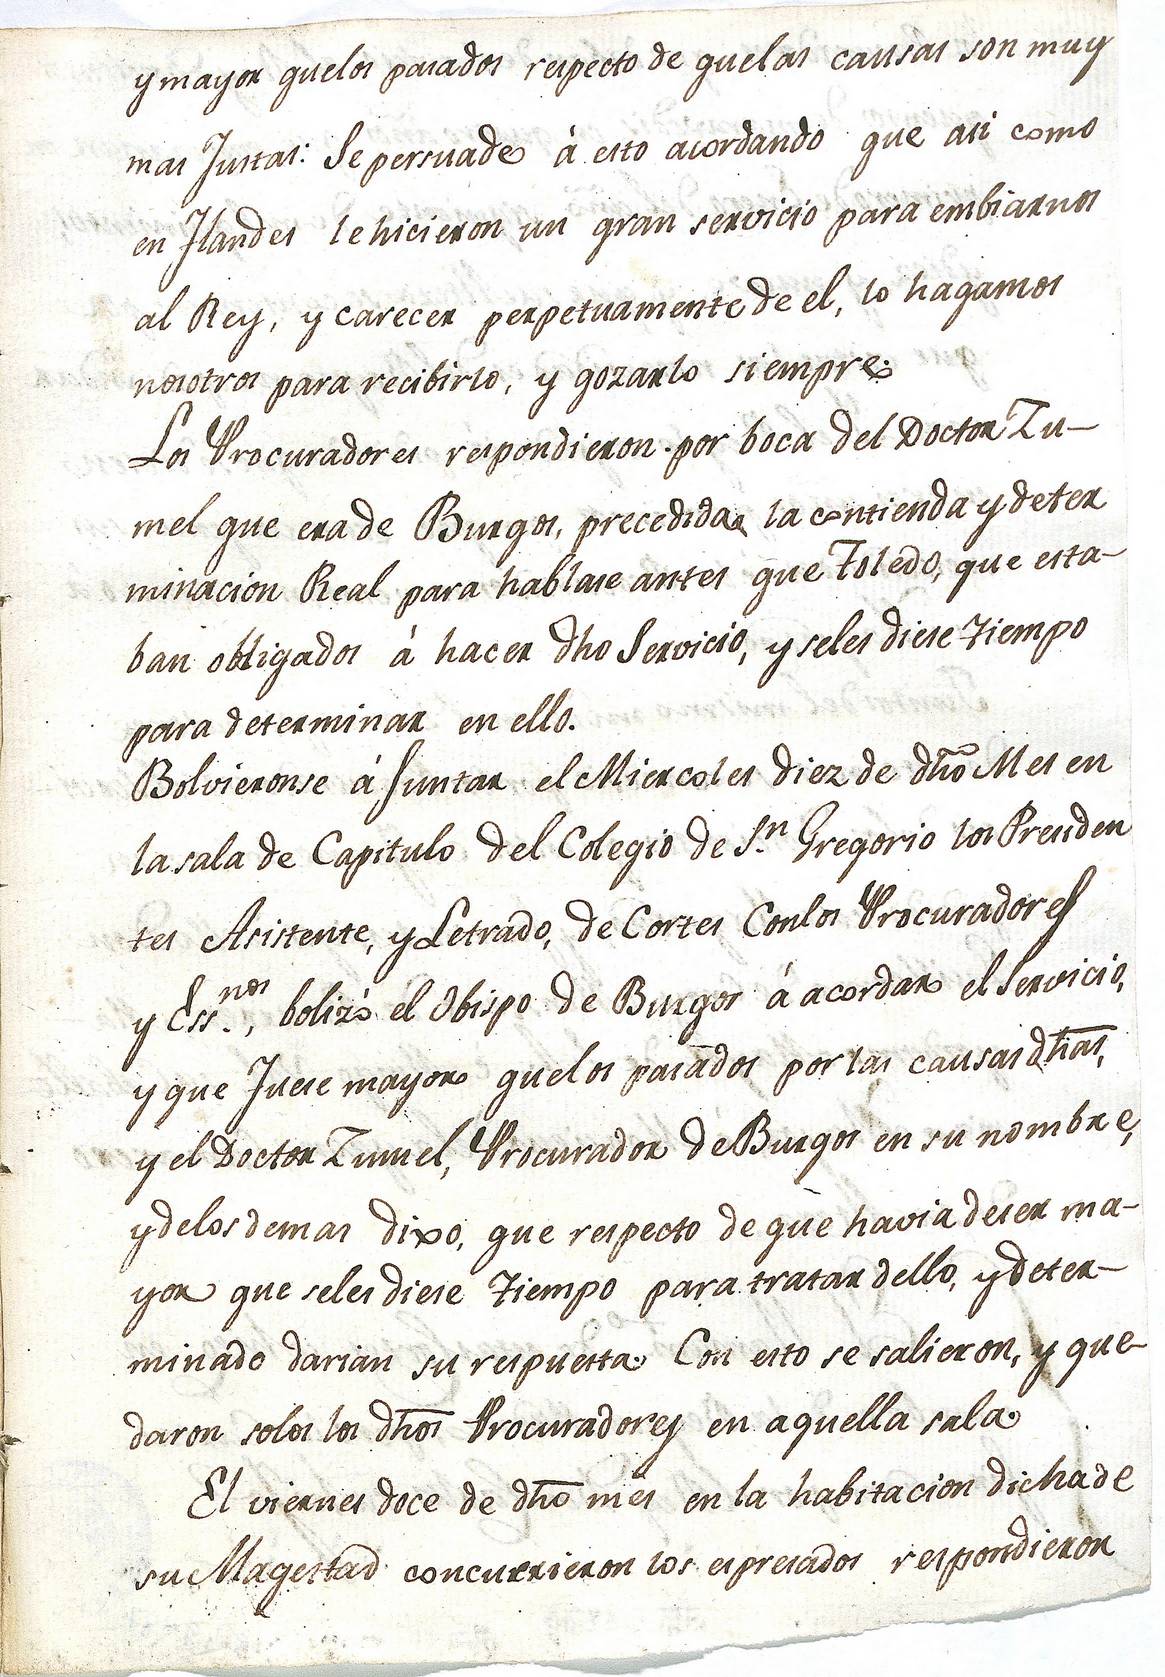 y mayor que los pasados respecto de que las causas son muy
mas Justas: Se persuade à esto acordando que asi como
en Flandes le hicieron un gran servicio para embiarnos
al Rey, y carecer perpetuamente de el, lo hagamos
nosotros para recibirlo, y gozarlo siempre.
Los Procuradores respondieron por boca del Doctor Zu-
mel que era de Burgos, precedida la contienda y deter
minacion Real para hablase antes que Toledo, que esta-
ban obligados à hacer dho Servicio, y seles diese tiempo
para determinar en ello.
Bolvieronse à Juntar el Miercoles diez de dho Mes en
la sala de Capitulo del Colegio de S.n Gregorio los Presiden
tes Asistente, y Letrado, de Cortes Con los Procuradores
y Ess.nos, bolizó el Obispo de Burgos à acordar el Servicio,
y que Fuese mayor que los pasados por las causas dhas,
y el Doctor Zumel, Procurador de Burgos en su nombre,
y delos demas dixo, que respecto de que havia de ser ma-
yor que seles diese tiempo para tratar dello, y deter-
minado darian su respuesta. Con esto se salieron, y que-
daron solos los dhos Procuradores en aquella sala.
El viernes doce de dho mes en la habitacion dicha de
su Magestad concurrieron los espresados respondieron